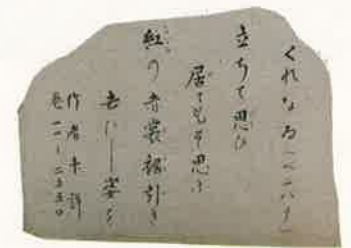 くれなゐ(ベニバナ)
立ちて思ひ
居てもそ思ふ
紅の赤裳裾引き
去にし姿を
作者未詳
巻一一-二五五〇